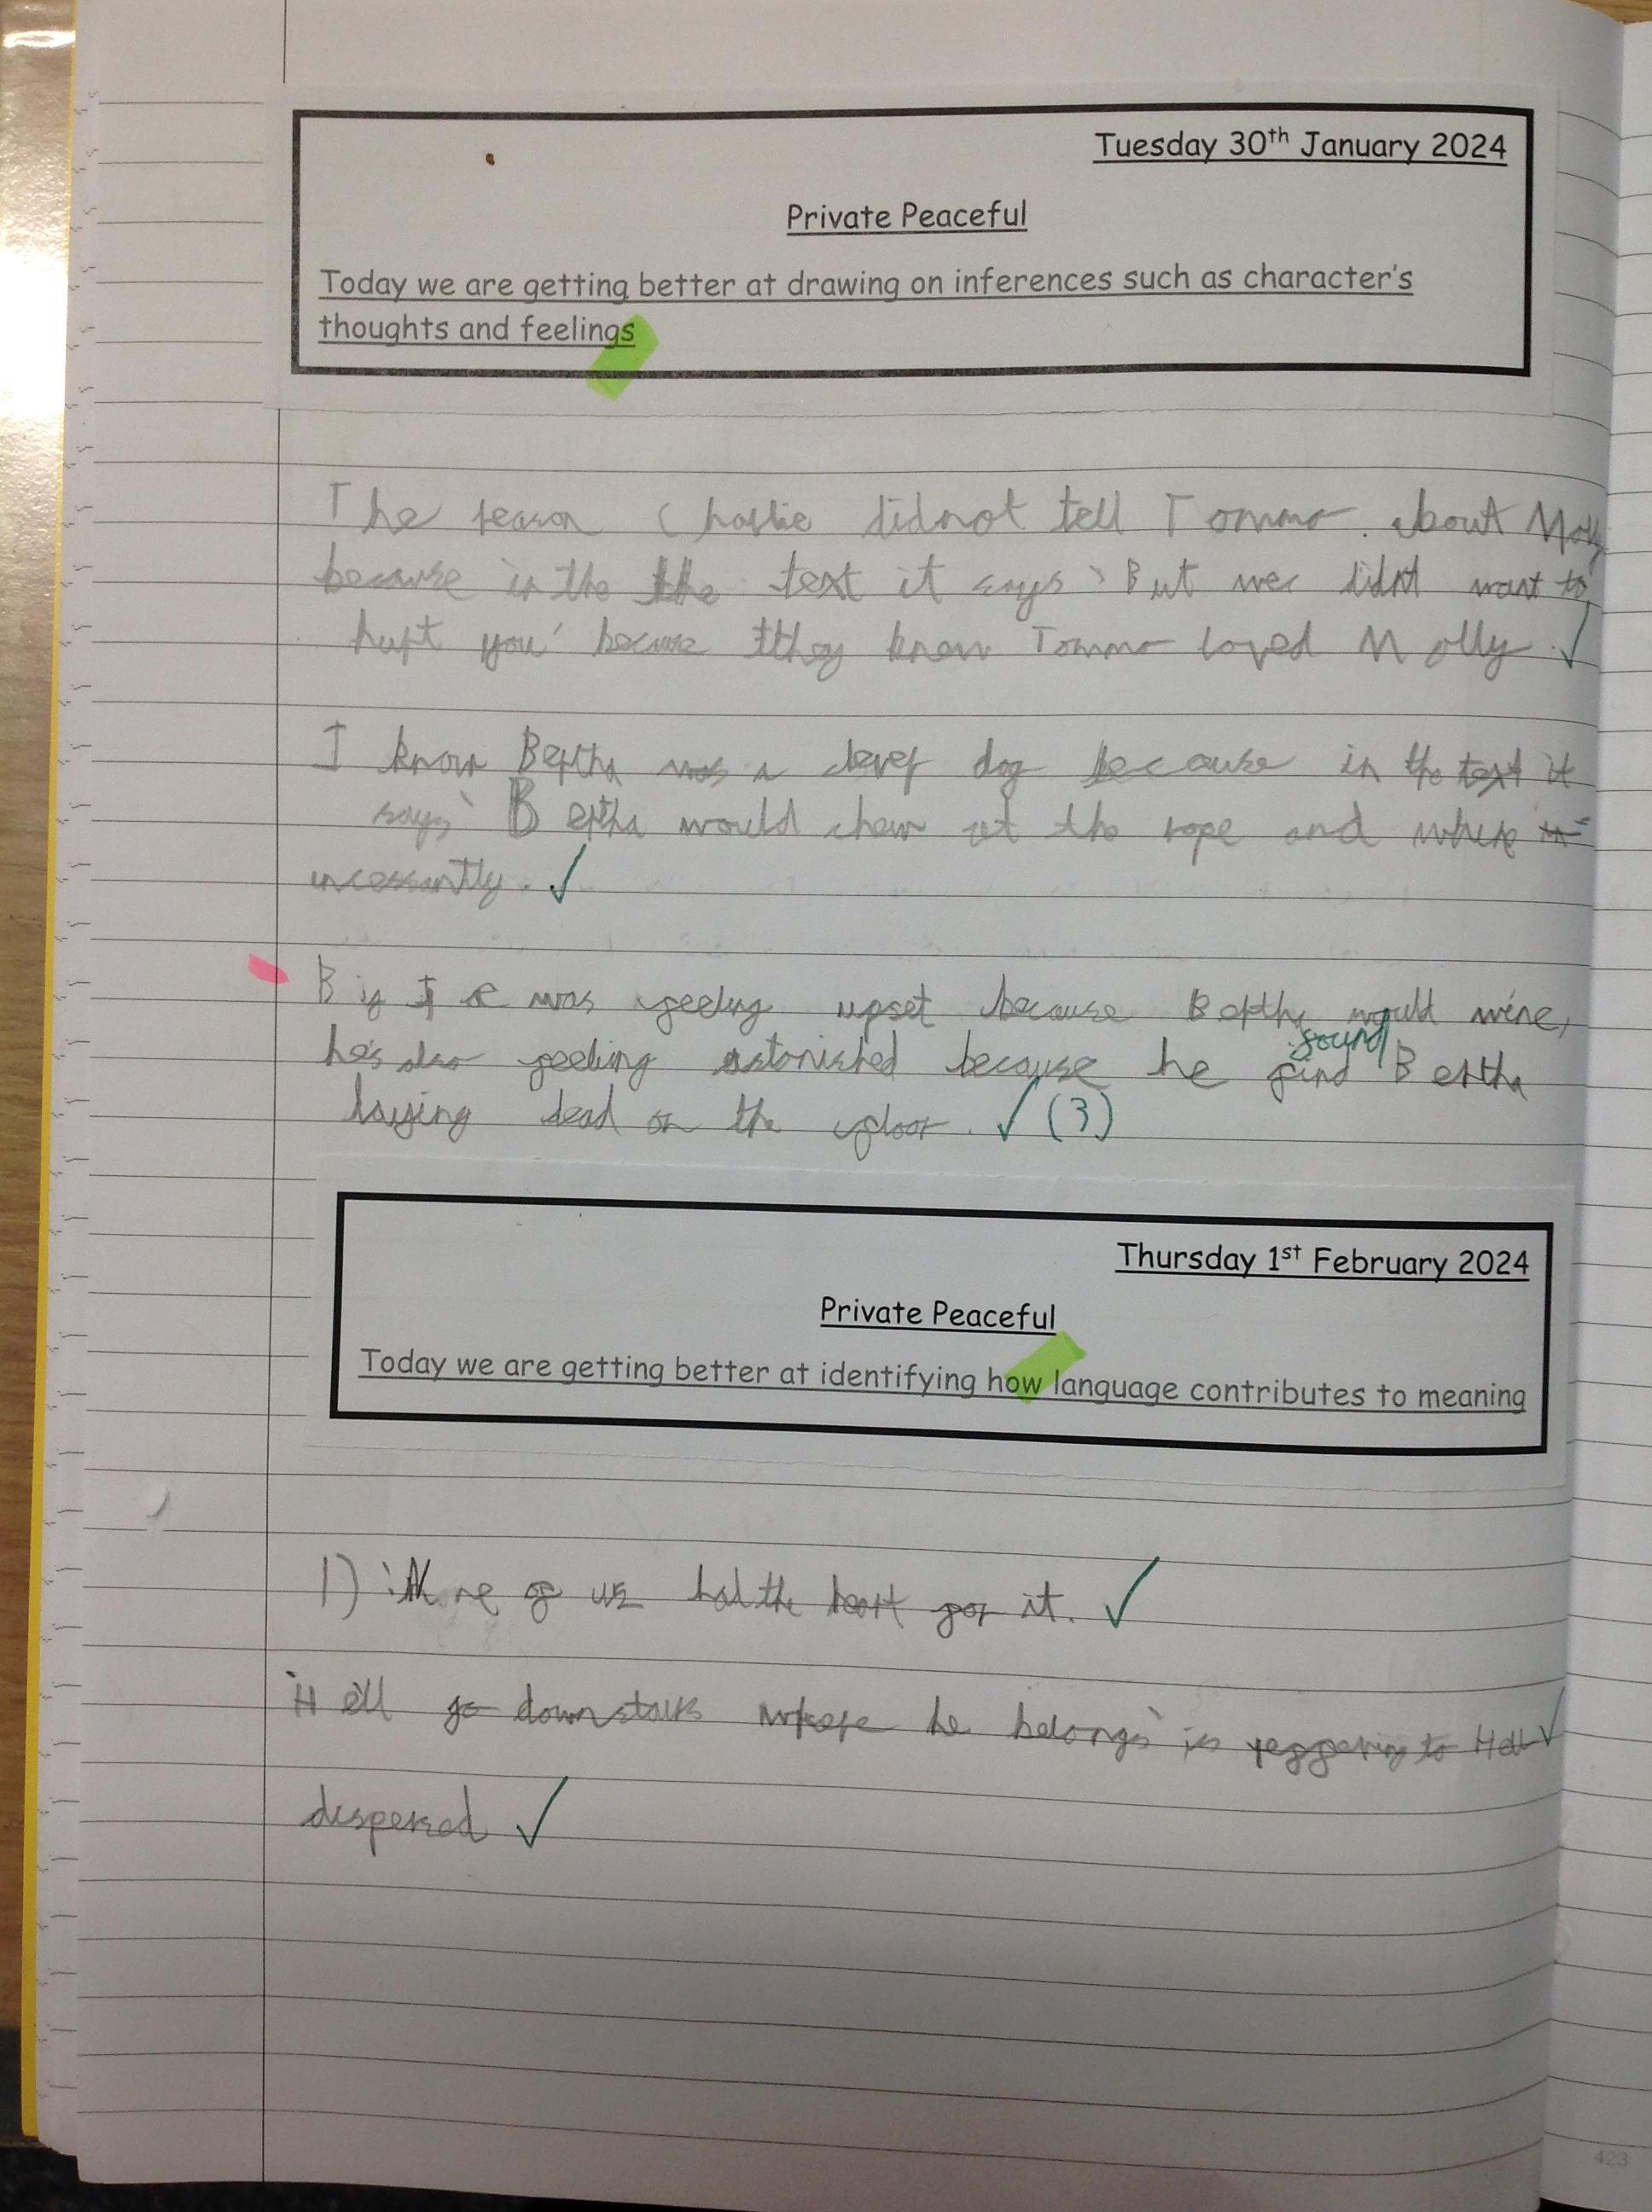 Tuesday 30th January 2024
Private Peaceful
Today we are getting better at drawing on inferences such as character's
thoughts and feelings
The reason Charlie didnot tell Tommo about Molly
because in the the text it says 'But we didnt want to
hurt you' because tthey knew Tommo loved Molly.
I know Bertha was a clever dog because in the text it
says' Bertha would chew at the rope and whine
incessantly.
Big Joe was feeling upset because Bertha would wine,
found
he's also feeling astonished because he find Bertha
laying dead on the floor. (3)
Thursday 1st February 2024
Private Peaceful
Today we are getting better at identifying how language contributes to meaning
1) 'None of us had the heart for it.
'Hell go downstairs where he belongs' is reffering to Hell
dispersed
423